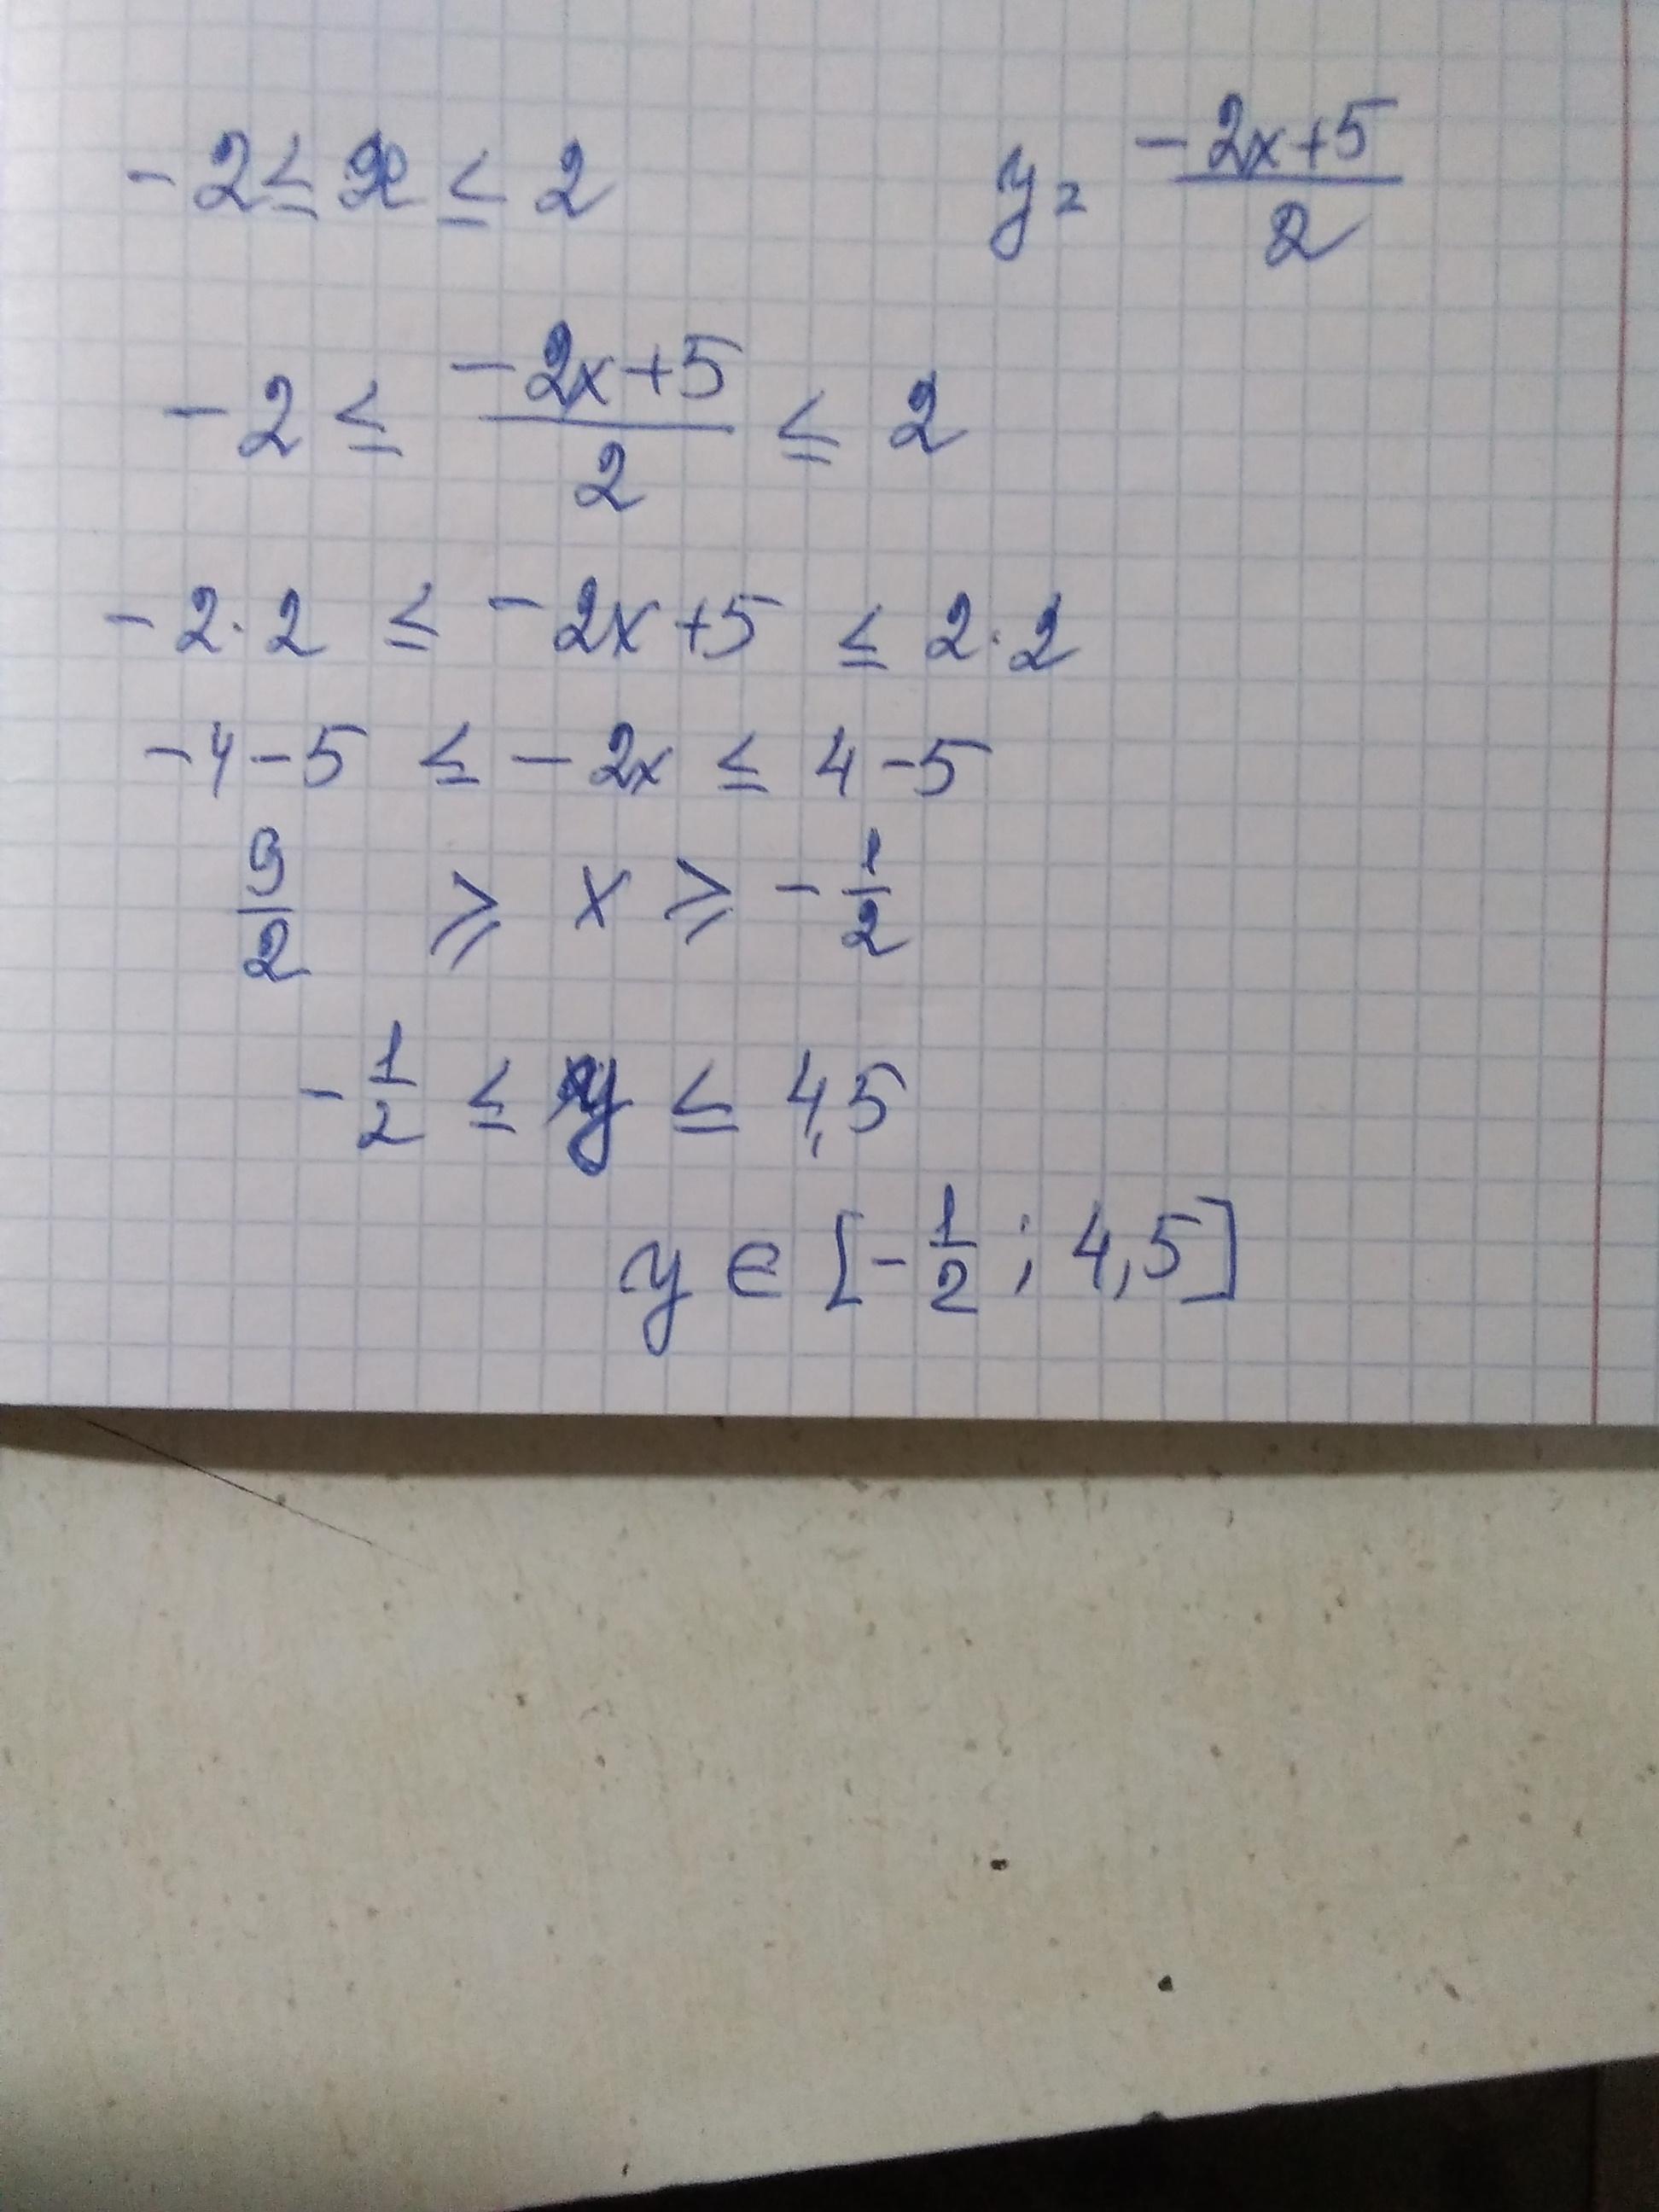 -2 ≤ x ≤ 2 y = (-2x+5)/2
-2 ≤ (-2x+5)/2 ≤ 2
-2·2 ≤ -2x+5 ≤ 2·2
-4-5 ≤ -2x ≤ 4-5
9/2 ⩾ x ⩾ -1/2
-1/2 ≤ y ≤ 4,5
y ∈ [-1/2; 4,5]